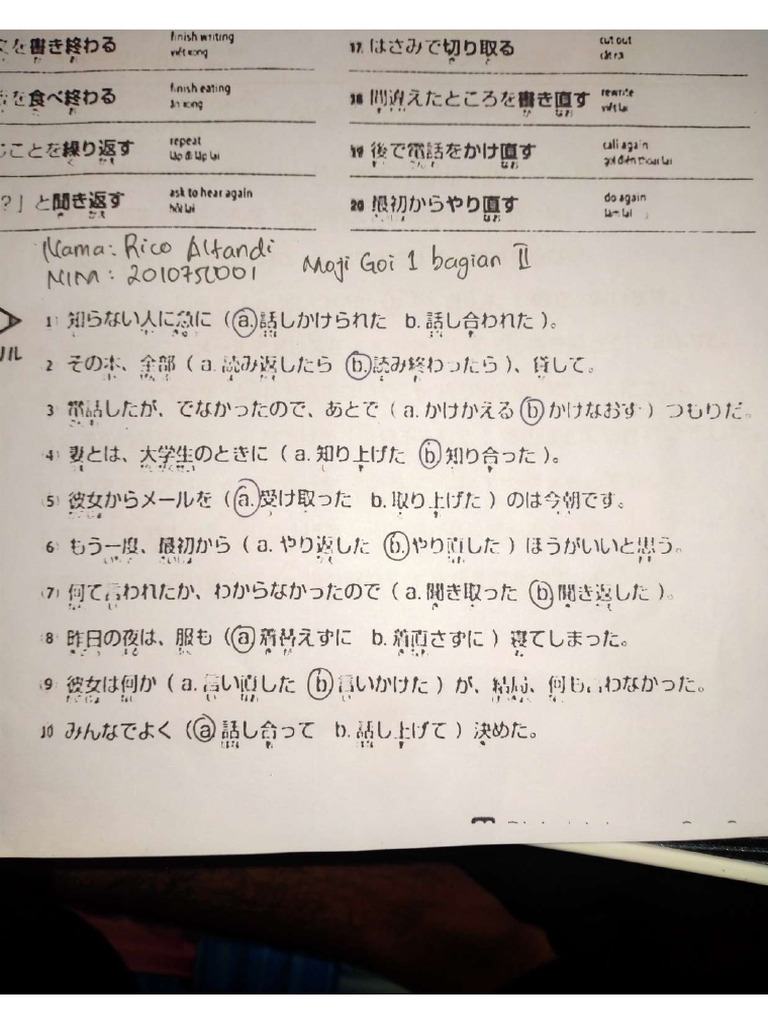 を書き終わる
finish writing
17 はさみで切り取る
cut out
を食べ終わる
finish eating
18 間違えたところを書き直す
rewrite
ことを繰り返す
repeat
lặp đi lặp lại
19 後で電話をかけ直す
call again
gọi điện thoại lại
？」と聞き返す
ask to hear again
hỏi lại
20 最初からやり直す
do again
làm lại
Nama: Rico Alfandi
NIM: 2010750001
Moji Goi 1 bagian II
ル
1 知らない人に急に（a. 話しかけられた b. 話し合われた）。
2 その本、全部（a. 読み返したら b. 読み終わったら）、貸して。
3 電話したが、でなかったので、あとで（a. かけかえる b かけなおす）つもりだ。
4 妻とは、大学生のときに（a. 知り上げた b 知り合った）。
5 彼女からメールを（a. 受け取った b. 取り上げた）のは今朝です。
6 もう一度、最初から（a. やり返した b. やり直した）ほうがいいと思う。
7 何て言われたか、わからなかったので（a. 聞き取った b 聞き返した）。
8 昨日の夜は、服も（a 着替えずに b. 着直さずに）寝てしまった。
9 彼女は何か（a. 言い直した b 言いかけた）が、結局、何も言わなかった。
10 みんなでよく（a 話し合って b. 話し上げて）決めた。